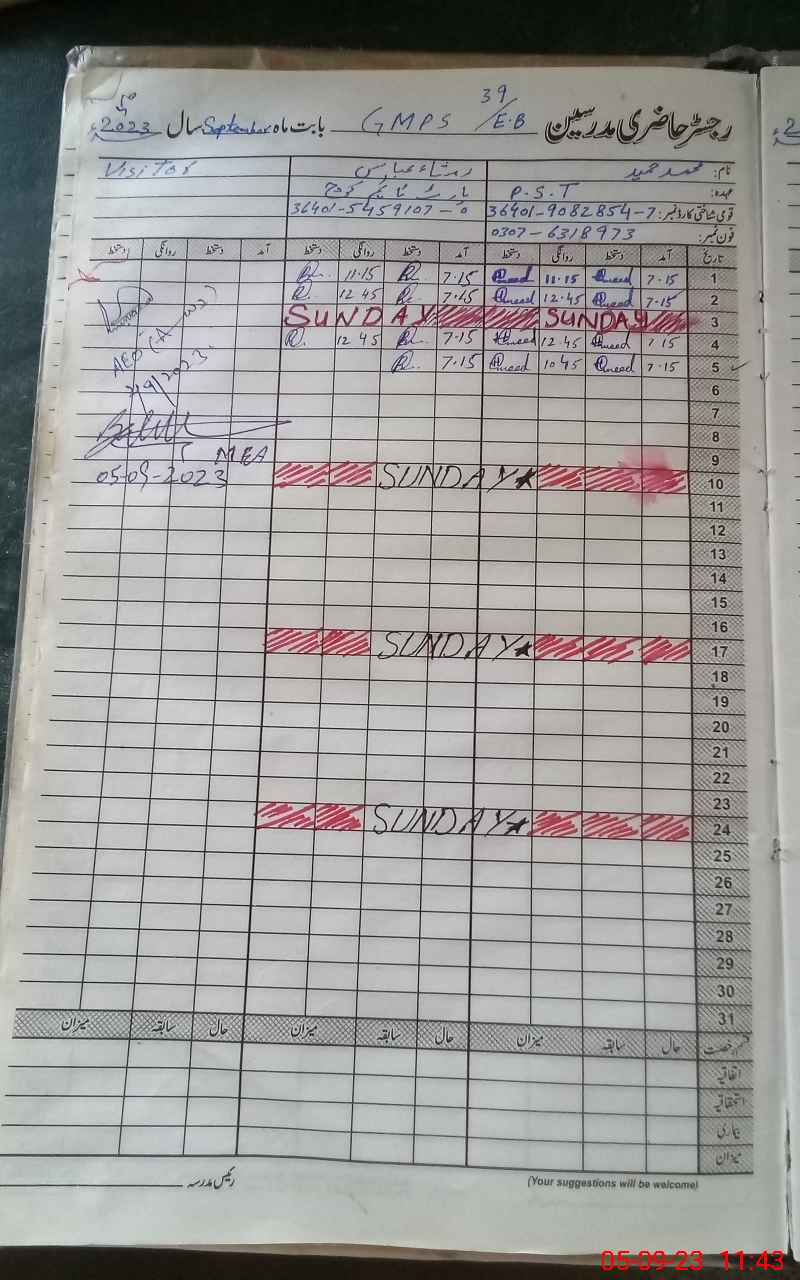 39
رجسٹر حاضری مدرسین GMPS /E.B بابت ماہ September سال 2023ء
نام: محمد حمید Visitor
عہدہ: P.S.T
قومی شناختی کارڈ نمبر: 36401-9082854-7 36401-5459107-0
فون نمبر: 0307-6318973
تاریخ آمد دستخط روانگی دستخط آمد دستخط روانگی دستخط آمد دستخط روانگی دستخط
1 7.15 11.15 7.15 11.15
2 7.15 12.45 7.45 12 45
3 SUNDAY SUNDAY
4 7.15 12.45 7.15 12 45
5 7.15 10 45 7.15
6
7
8
9 MEA
10 SUNDAY 05-09-2023
11
12
13
14
15
16
17 SUNDAY
18
19
20
21
22
23
24 SUNDAY
25
26
27
28
29
30
31
قسم رخصت حال سابقہ میزان حال سابقہ میزان حال سابقہ میزان
اتفاقیہ
استحقاقیہ
بیماری
میزان
رئیس مدرسہ
(Your suggestions will be welcome)
05-09-23 11:43